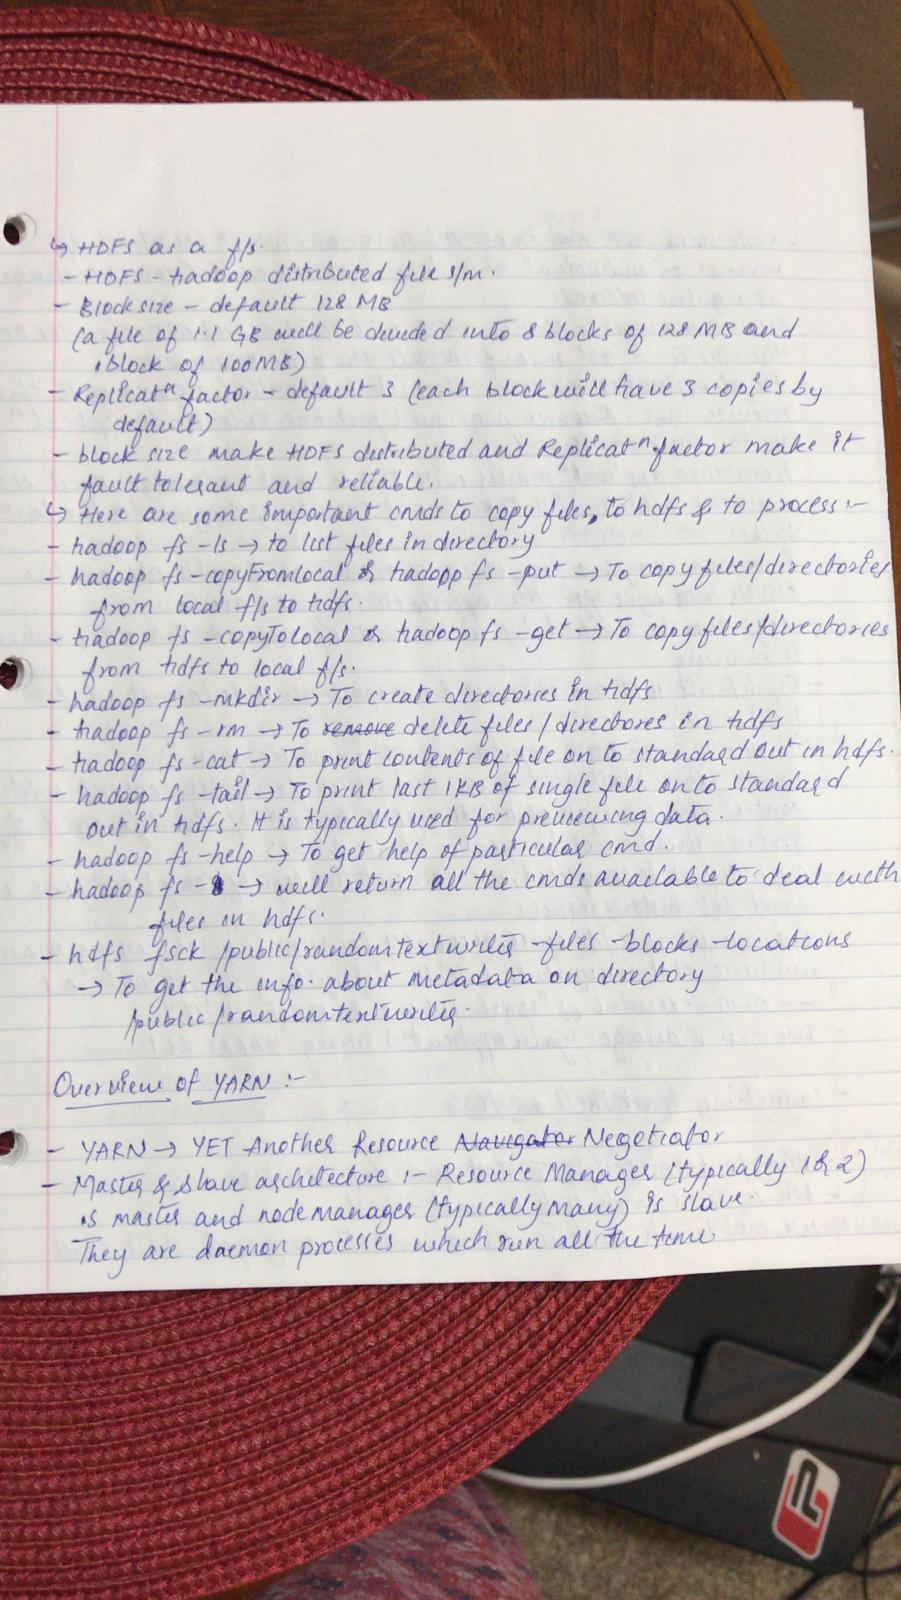 ↳ HDFS as a f/s.
- HDFS - hadoop distributed file s/m.
- Block size - default 128 MB
(a file of 1.1 GB will be divided into 8 blocks of 128 MB and
1 block of 100MB)
- Replicatⁿ factor - default 3 (each block will have 3 copies by
default)
- block size make HDFS distributed and Replicatⁿ factor make it
fault tolerant and reliable.
↳ Here are some important cmds to copy files, to hdfs & to process :-
- hadoop fs -ls → to list files in directory
- hadoop fs -copyFromLocal or hadoop fs -put → To copy files/directories
from local f/s to hdfs.
- hadoop fs -copyToLocal or hadoop fs -get → To copy files/directories
from hdfs to local f/s.
- hadoop fs -mkdir → To create directories in hdfs
- hadoop fs -rm → To remove delete files / directores in hdfs
- hadoop fs -cat → To print contents of file on to standard out in hdfs.
- hadoop fs -tail → To print last 1KB of single file on to standard
out in hdfs. It is typically used for previewing data.
- hadoop fs -help → To get help of particular cmd.
- hadoop fs - → will return all the cmds available to deal with
files in hdfs.
- hdfs fsck /public/randomtextwriter -files -blocks -locations
→ To get the info. about metadata on directory
/public/randomtextwriter.
Overview of YARN :-
- YARN → YET Another Resource Navigator Negotiator
- Master & Slave architecture :- Resource Manager (typically 1 or 2)
is master and node manager (typically many) is slave.
They are daemon processes which run all the time.